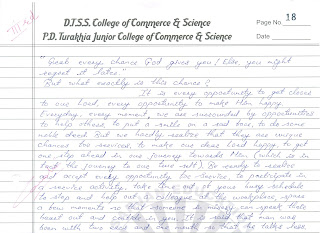 D.T.S.S. College of Commerce & Science
P.D. Turakhia Junior College of Commerce & Science
Page No. 18
Date
"Grab every chance God gives you! Else, you might
regret it later."
But what exactly is this chance?
It is every opportunity to get closer
to our Lord, every opportunity to make Him happy.
Everyday, every moment, we are surrounded by opportunities
to help others, to put a smile on a sad face, to do some
noble deed. But we hardly realise that they are unique
chances too services, to make our dear Lord happy, to get
one step ahead in our journey towards Him (which is in
fact the journey to our self). So ready to realise
and accept every opportunity too service, to participate in
a service activity, take time out of your busy schedule
to stop and help out a colleague at the workplace, spare
a few moments so that someone in misery can speak their
heart out and confide in you. It is said that man was
born with two ears and one mouth so that he talks less